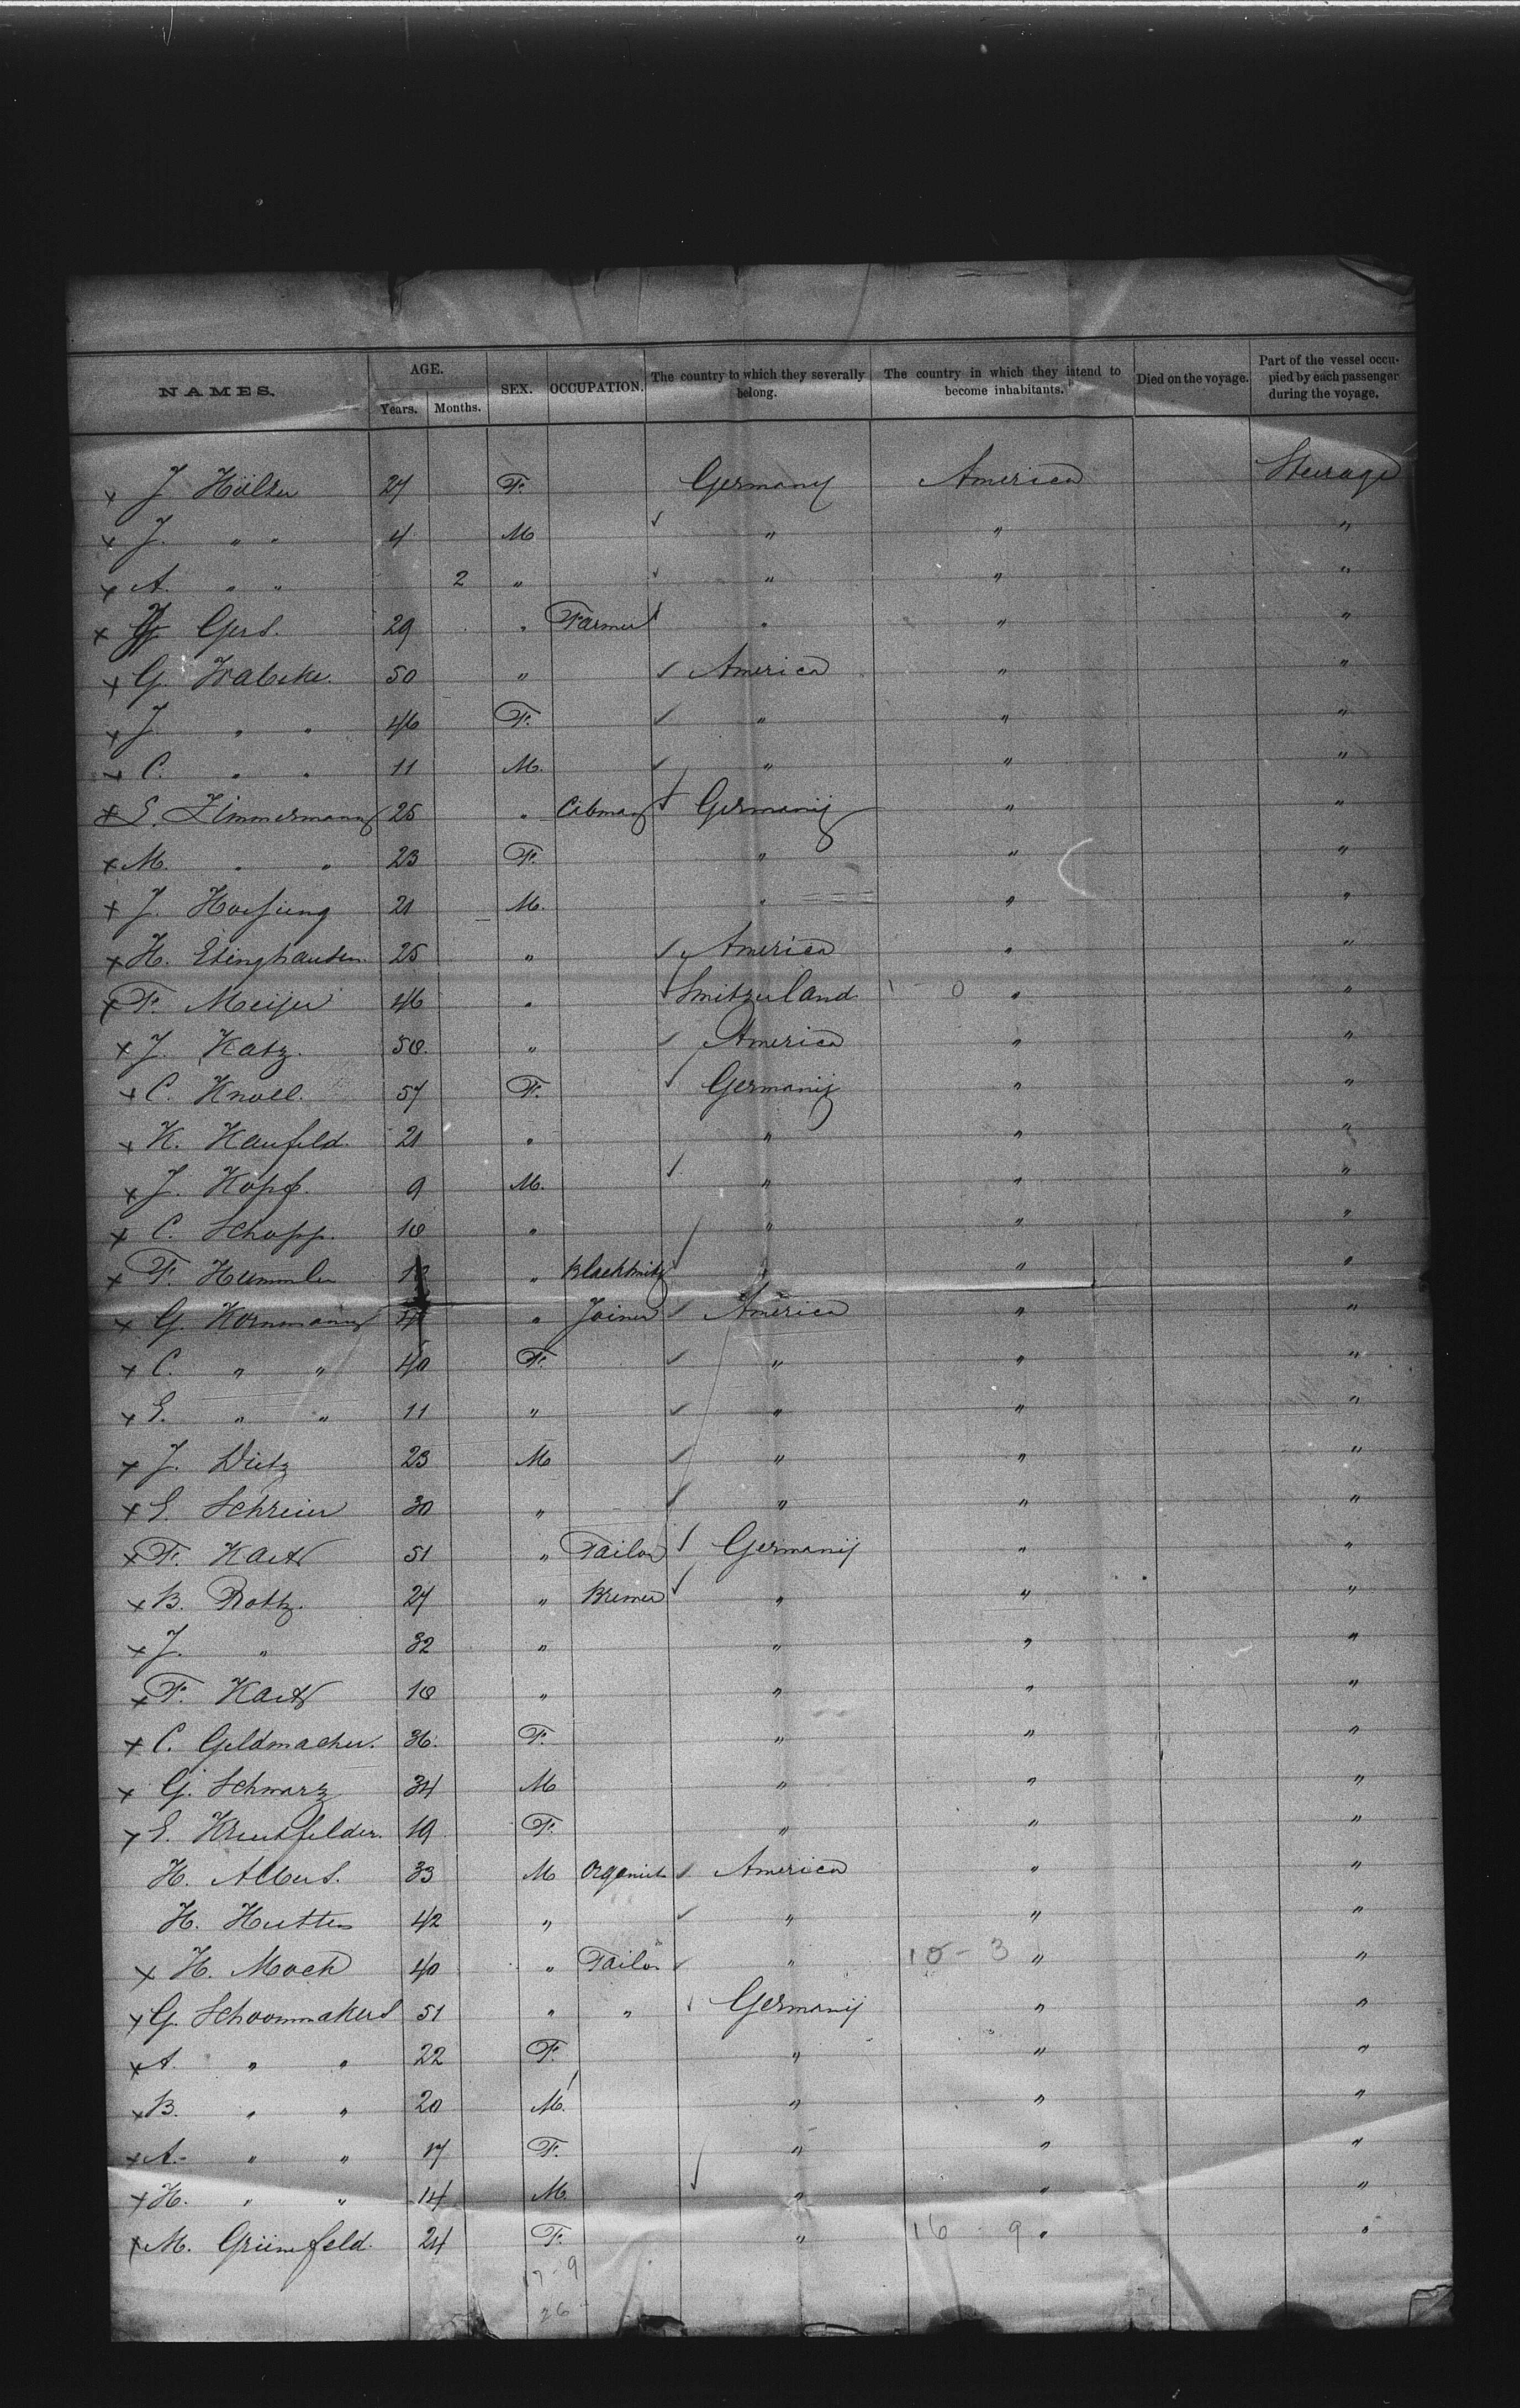 NAMES. AGE. Years. Months. SEX. OCCUPATION. The country to which they severally belong. The country in which they intend to become inhabitants. Died on the voyage. Part of the vessel occupied by each passenger during the voyage.
x J Hölser 27 F. Germany America Steerage
x J. " " 4 M " " "
x A. " " 2 " " " "
x Gers. 29 " Farmer " " "
x G. Wabeke. 50 " America " "
x J. " " 46 F. " " "
x C. " " 11 M. " " "
x E. Zimmermann 25 " Germany " "
x M. " " 23 F. " " "
x J. 21 M. " " "
x H. Etinghausen 25 " America " "
x F. Meijer 46 " Switzerland 1 - 0 " "
x J. Katz. 50. " America " "
x C. Knoll. 57 F. Germany " "
x K. Kaufeld. 21 " " " "
x J. Kopf. 9 M. " " "
x C. Schopp. 10 " " " "
x F. Hummler " Blacksmith " " "
x G. Kornmann " Joiner America " "
x C. " " 40 F. " " "
x E. " " 11 " " " "
x J. Dietz 23 M " " "
x E. Schreier 30 " " " "
x F. 51 " Tailor Germany " "
x B. Rottz. 27 " Brewer " " "
x J. " 32 " " " "
x F. 10 " " " "
x C. Geldmacher. 36. F. " " "
x G. Schwarz 34 M " " "
x E. Kreutfelder. 19 F. " " "
H. Albers. 33 M Organist America " "
H. Hutten 42 " " " "
x H. Mock 40 " Tailor " 10 - 3 " "
x G. Schoonmakers 51 " " Germany " "
x A. " " 22 F. " " "
x B. " " 20 M. " " "
x A. " " 17 F. " " "
x H. " " 14 M. " " "
x M. Grünefeld. 24 F. " 16 9 " "
17-9
26